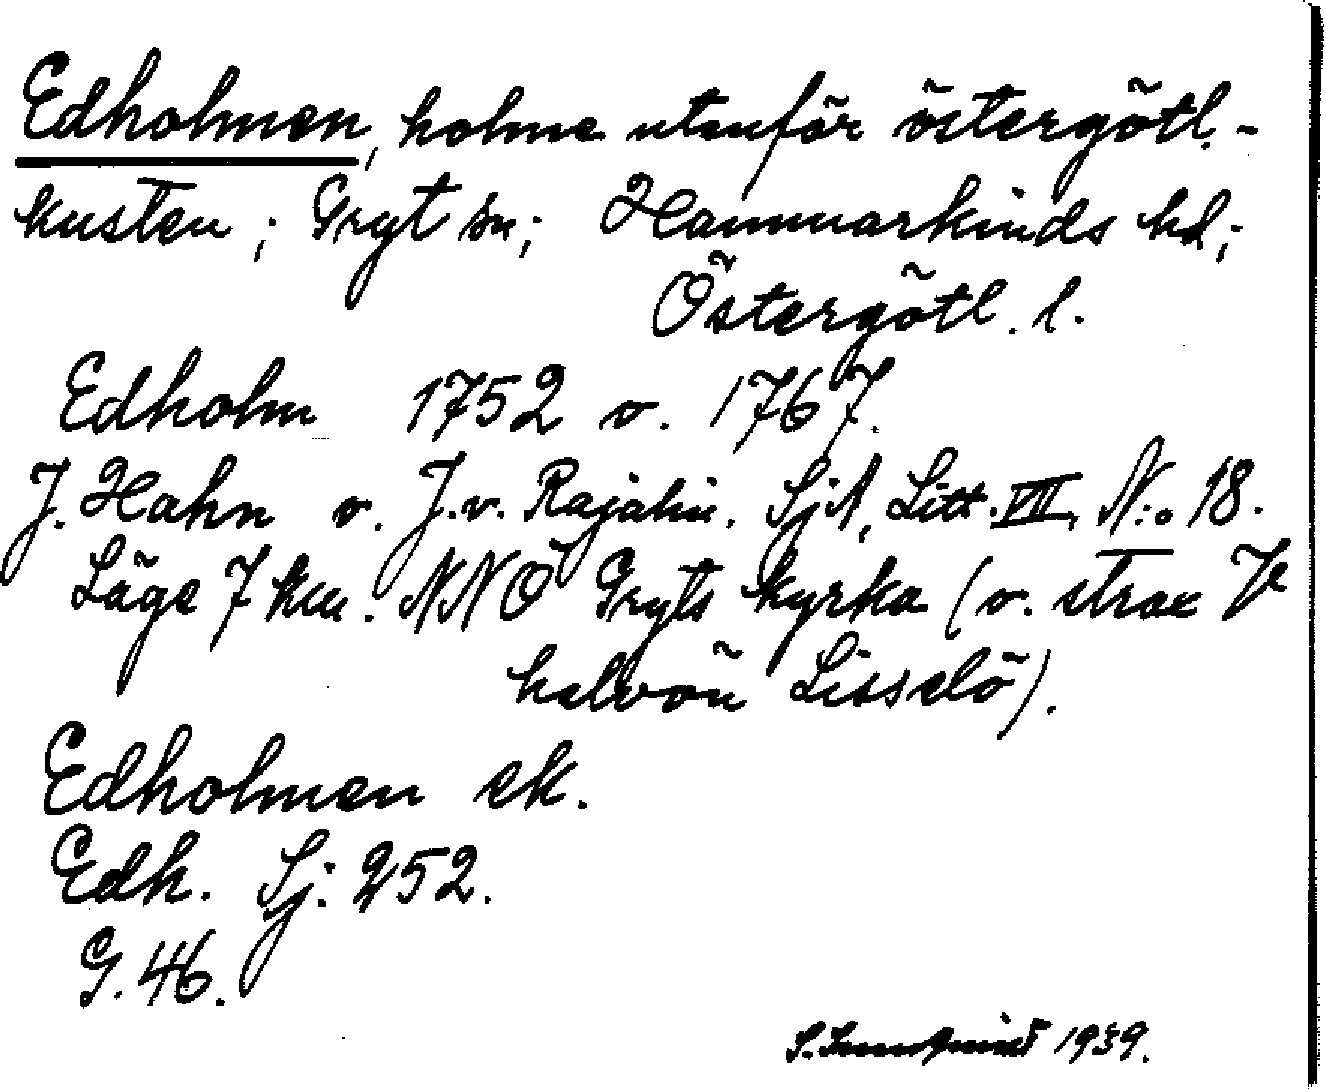 Edholmen, holme utanför östergötl.-
kusten; Gryt sn; Hammarkinds hd;
Östergötl. l.
Edholm 1752 o. 1767.
J. Hahn o. J. v. Rajalin. SjA, Litt. VII, N:o 18.
Läge 7 km. NNÖ Gryts kyrka (o. strax
halvön Lisselö).
Edholmen ek.
Edh. Sj: 252.
G. 46.
S. 1939.